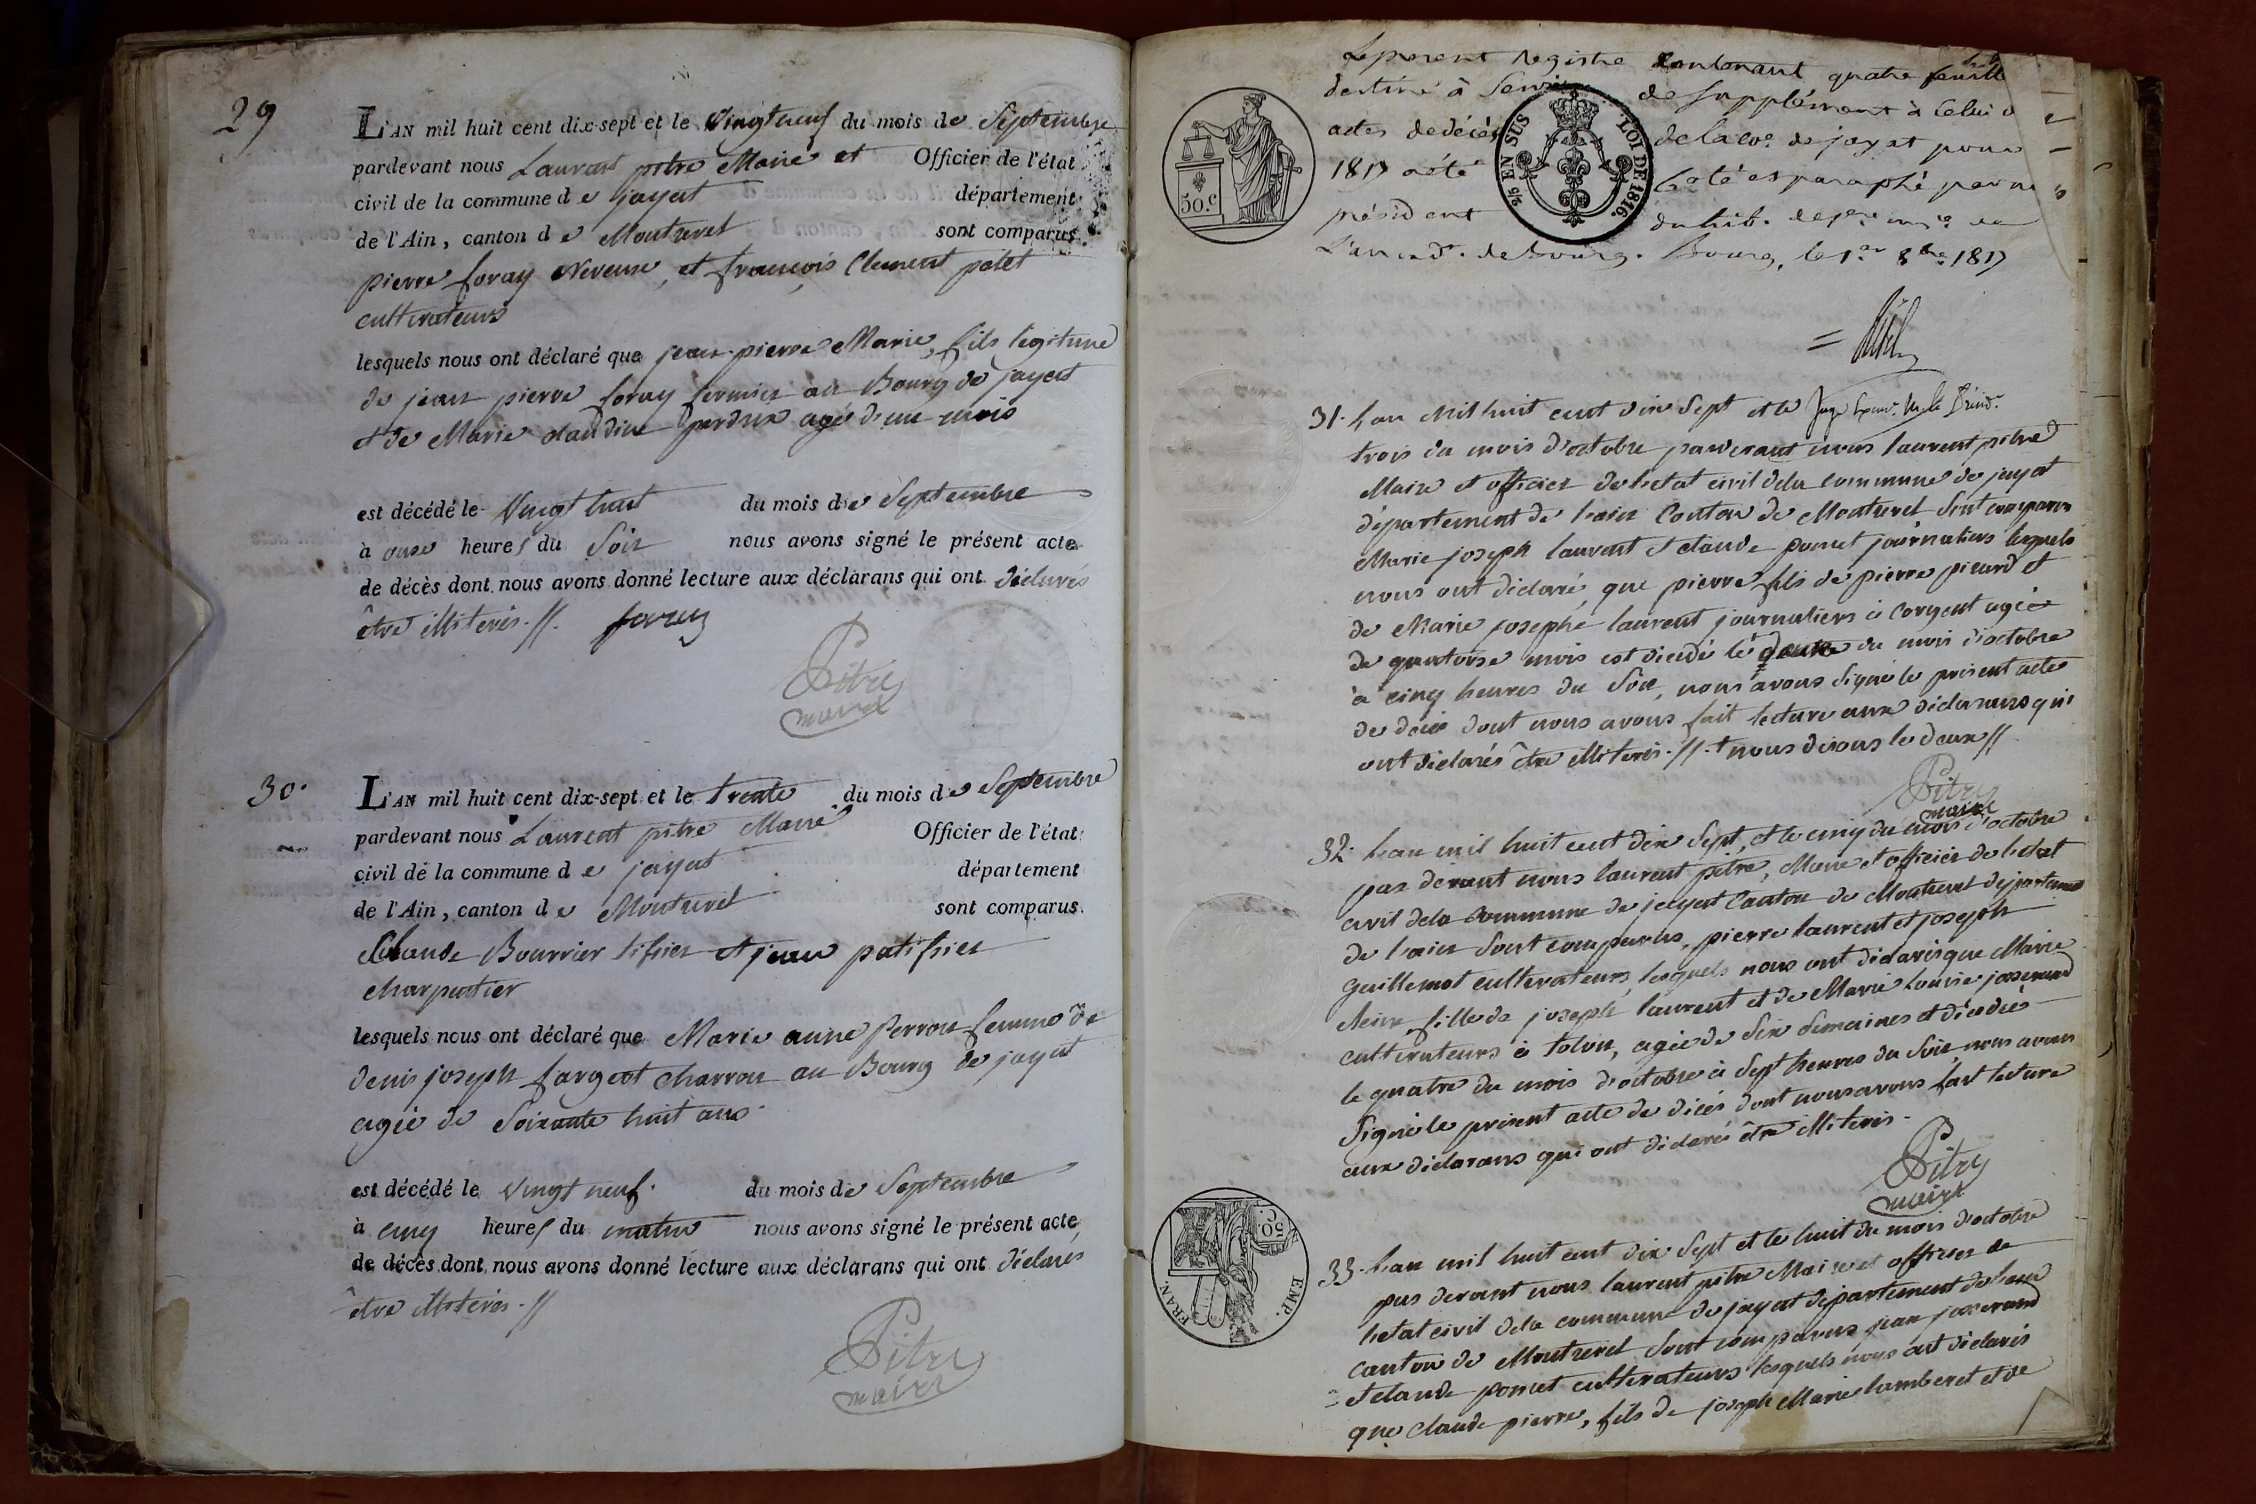 29
L'AN mil huit cent dix-sept et le vingt neuf du mois de Septembre
pardevant nous Laurent pitre Maire et Officier de l'état
civil de la commune de jayat département
de l'Ain, canton de Montrevel sont comparus
pierre foray Neveux, et françois Clement petet
cultivateurs
lesquels nous ont déclaré que jean-pierre Marie, fils legitime
de jean pierre foray fermier au Bourg de jayat
et de Marie claudine perdrix agé d'un mois
est décédé le vingt huit du mois de Septembre
à onze heures du Soir nous avons signé le présent acte
de décès dont nous avons donné lecture aux déclarans qui ont déclarés
être illiterés.//. foray
Pitre
maire
30.
L'AN mil huit cent dix-sept et le trente du mois de Septembre
pardevant nous Laurent pitre Maire Officier de l'état
civil de la commune de jayat département
de l'Ain, canton de Montrevel sont comparus
Claude Bourrier tissier et jean patissier
charpentier
lesquels nous ont déclaré que Marie anne perron femme de
denis joseph fargeot charron au Bourg de jayat
agée de Soixante huit ans.
est décédé le vingt neuf. du mois de Septembre
à cinq heures du matin nous avons signé le présent acte
de décès dont nous avons donné lecture aux déclarans qui ont déclarés
être illiterés.//
Pitre
maire
Le present Registre contenant quatre feuill
destiné à Servir de Supplément à Celui d
actes de décès de la co.e de jayat pour
1817 a été Coté et paraphé par n
président du trib. de 1ere ins.ce de
L'arrond.t de Bourg. Bourg, le 1.er 8bre 1817
50.c
2/5 EN SUS LOI DE 1816.
31. L'an Mil huit cent dix Sept et le
trois du mois d'octobre pardevant nous laurent pitre
Maire et officier de l'etat civil de la commune de jayat
département de l'ain Canton de Montrevel Sont comparus
Marie joseph laurent et claude pomet journaliers lesquels
nous ont déclaré que pierre fils de pierre picard et
de Marie josephe laurent journaliers à Corgent agée
de quatorse mois est décedé le du mois d'octobre
à cinq heures du Soir, nous avons Signé le présent acte
de décès dont nous avons fait lecture aux déclarans qui
ont déclarés être illiterés.//.+ nous disons le deux//
Pitre
maire
32. L'an mil huit cent dix Sept, et le cinq du mois d'octobre
par devant nous laurent pitre, Maire et officier de l'etat
civil de la commune de jayat Canton de Montrevel département
de l'ain Sont comparus, pierre laurent et joseph
guillemot cultivateurs, lesquels nous ont déclarés que Marie
Reine fille de joseph laurent et de Marie Louise josserand
cultivateurs à tolon, agée de Six Semaines et décedée
le quatre du mois d'octobre à Sept heures du Soir nous avons
Signé le présent acte de décés dont nous avons fait lecture
aux déclarans qui ont déclarés être illiterés.
Pitre
maire
50 C.
EMP. FRAN.
33. L'an mil huit cent dix Sept et le huit du mois d'octobre
par devant nous laurent pitre Maire et officier de
l'etat civil de la commune de jayat département de l'ain
canton de Montrevel Sont comparus jean josserand
et claude pomet cultivateurs lesquels nous ont déclarés
que claude pierre, fils de joseph Marie lamberet et de